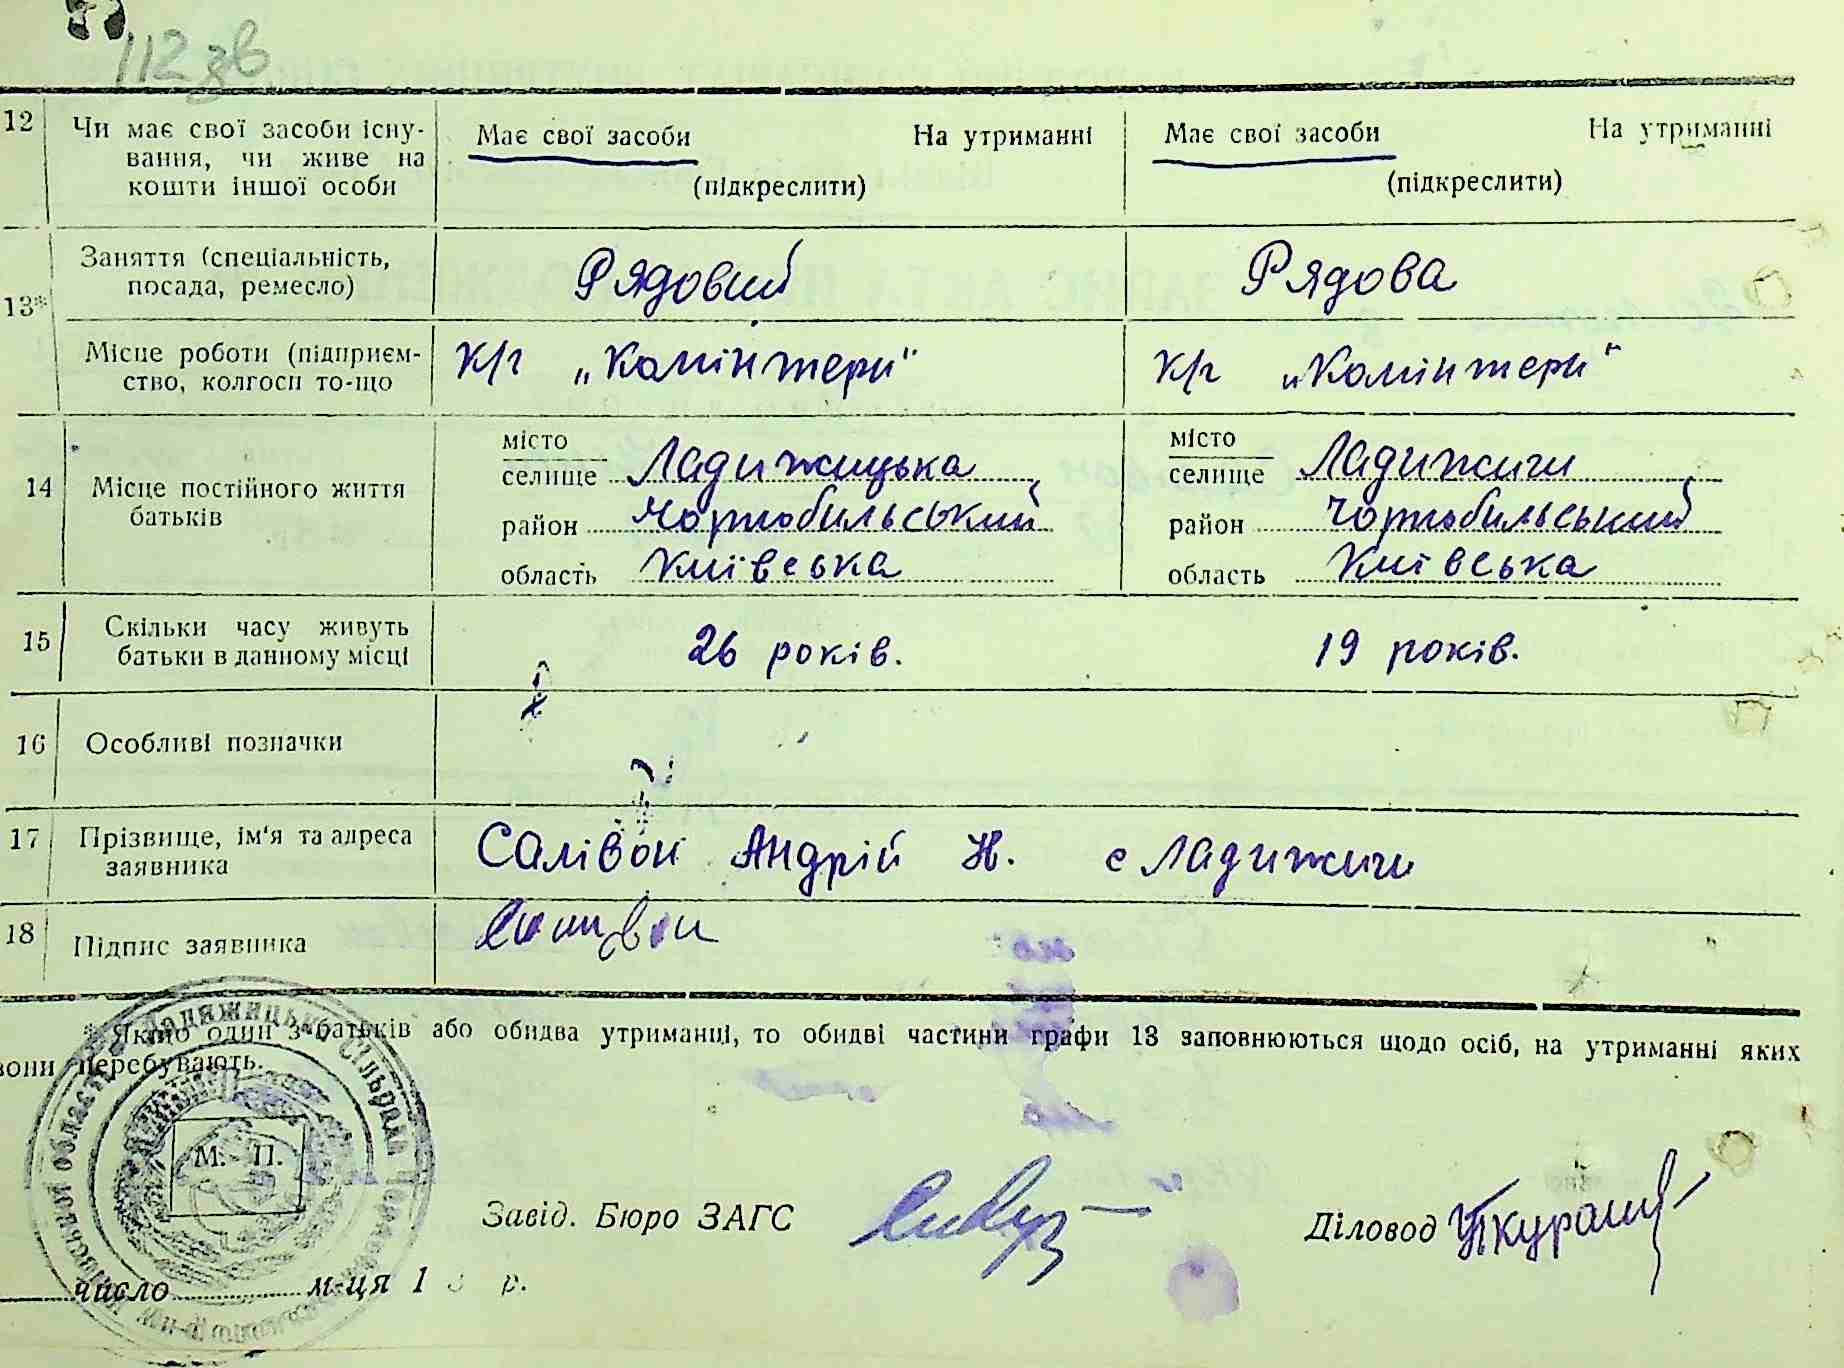 112 зв
12 Чи має свої засоби існу- Має свої засоби На утриманні Має свої засоби На утриманні
вання, чи живе на
кошти іншої особи (підкреслити) (підкреслити)
13* Заняття (спеціальність, Рядовий Рядова
посада, ремесло)
Місце роботи (підприєм- к/г „Комінтерн" к/г „Комінтерн"
ство, колгосп то-що
14 Місце постійного життя батьків
місто місто
селище Ладижицька селище Ладижичи
район Чорнобильський район Чорнобильський
область Київська область Київська
15 Скільки часу живуть 26 років. 19 років.
батьки в данному місці
16 Особливі позначки
17 Прізвище, ім'я та адреса Салівон Андрій Н. с Ладижичи
заявника
18 Підпис заявника
* Якщо один з батьків або обидва утриманці, то обидві частини графи 13 заповнюються щодо осіб, на утриманні яких
вони перебувають.
Ладижицька Сільрада
М. П.
Завід. Бюро ЗАГС Діловод
число м-ця 1 р.